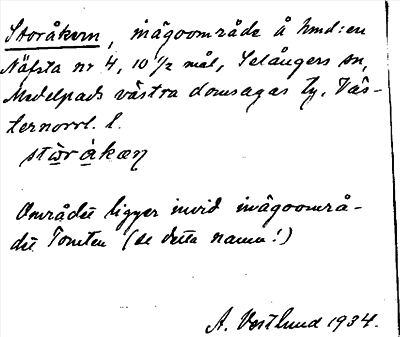 Storåkern, inägoområde å hmd:en
Näfsta nr 4, 10 1/2 mål, Selångers sn,
Medelpads västra domsagas tg, Väs-
ternorrl. l.
stòr àkæn
Området ligger invid inägoområ-
det Tomten (se detta namn!)
A. Vestlund 1934.